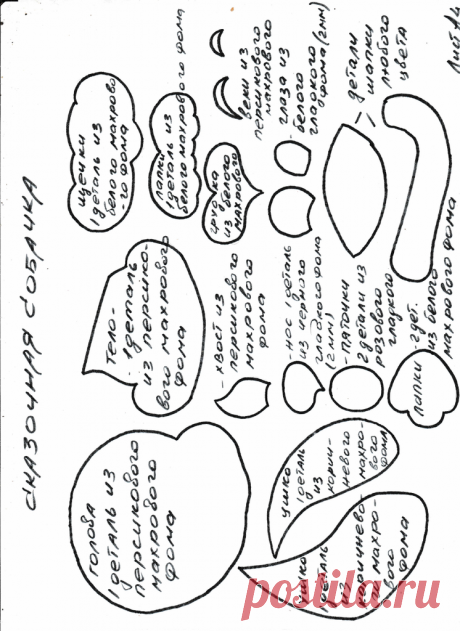 СКАЗОЧНАЯ СОБАЧКА
Лист А4
ГОЛОВА
1 ДЕТАЛЬ ИЗ
ПЕРСИКОВОГО
МАХРОВОГО
ФОМА
ТЕЛО-
1 ДЕТАЛЬ
ИЗ ПЕРСИКО-
ВОГО МАХРОВОГО
ФОМА
ЩЕЧКИ
1 ДЕТАЛЬ ИЗ
БЕЛОГО МАХРОВО
ГО ФОМА
ЛАПКИ
1 ДЕТАЛЬ ИЗ
БЕЛОГО МАХРОВОГО ФОМА
ГРУДКА
ИЗ БЕЛОГО
МАХРОВОГО
ВЕКИ ИЗ
ПЕРСИКОВОГО
МАХРОВОГО
ГЛАЗА ИЗ
БЕЛОГО
ГЛАДКОГО
ФОМА (2ММ)
ДЕТАЛИ
ШАПКИ
ЛЮБОГО
ЦВЕТА
- ХВОСТ ИЗ
ПЕРСИКОВОГО
МАХРОВОГО
ФОМА
- НОС 1 ДЕТАЛЬ
ИЗ ЧЕРНОГО
ГЛАДКОГО ФОМА
(2ММ)
- ПЯТОЧКИ
2 ДЕТАЛИ ИЗ
РОЗОВОГО
ГЛАДКОГО
ЛАПКИ - 2 ДЕТ.
ИЗ БЕЛОГО
МАХРОВОГО ФОМА
УШКО
1 ДЕТАЛЬ
ИЗ
КОРИЧ-
НЕВОГО
МАХРО-
ВОГО
ФОМА
УШКО
1 ДЕТАЛЬ
ИЗ
КОРИЧНЕВО-
ГО МАХРО-
ВОГО ФОМА
postila.ru